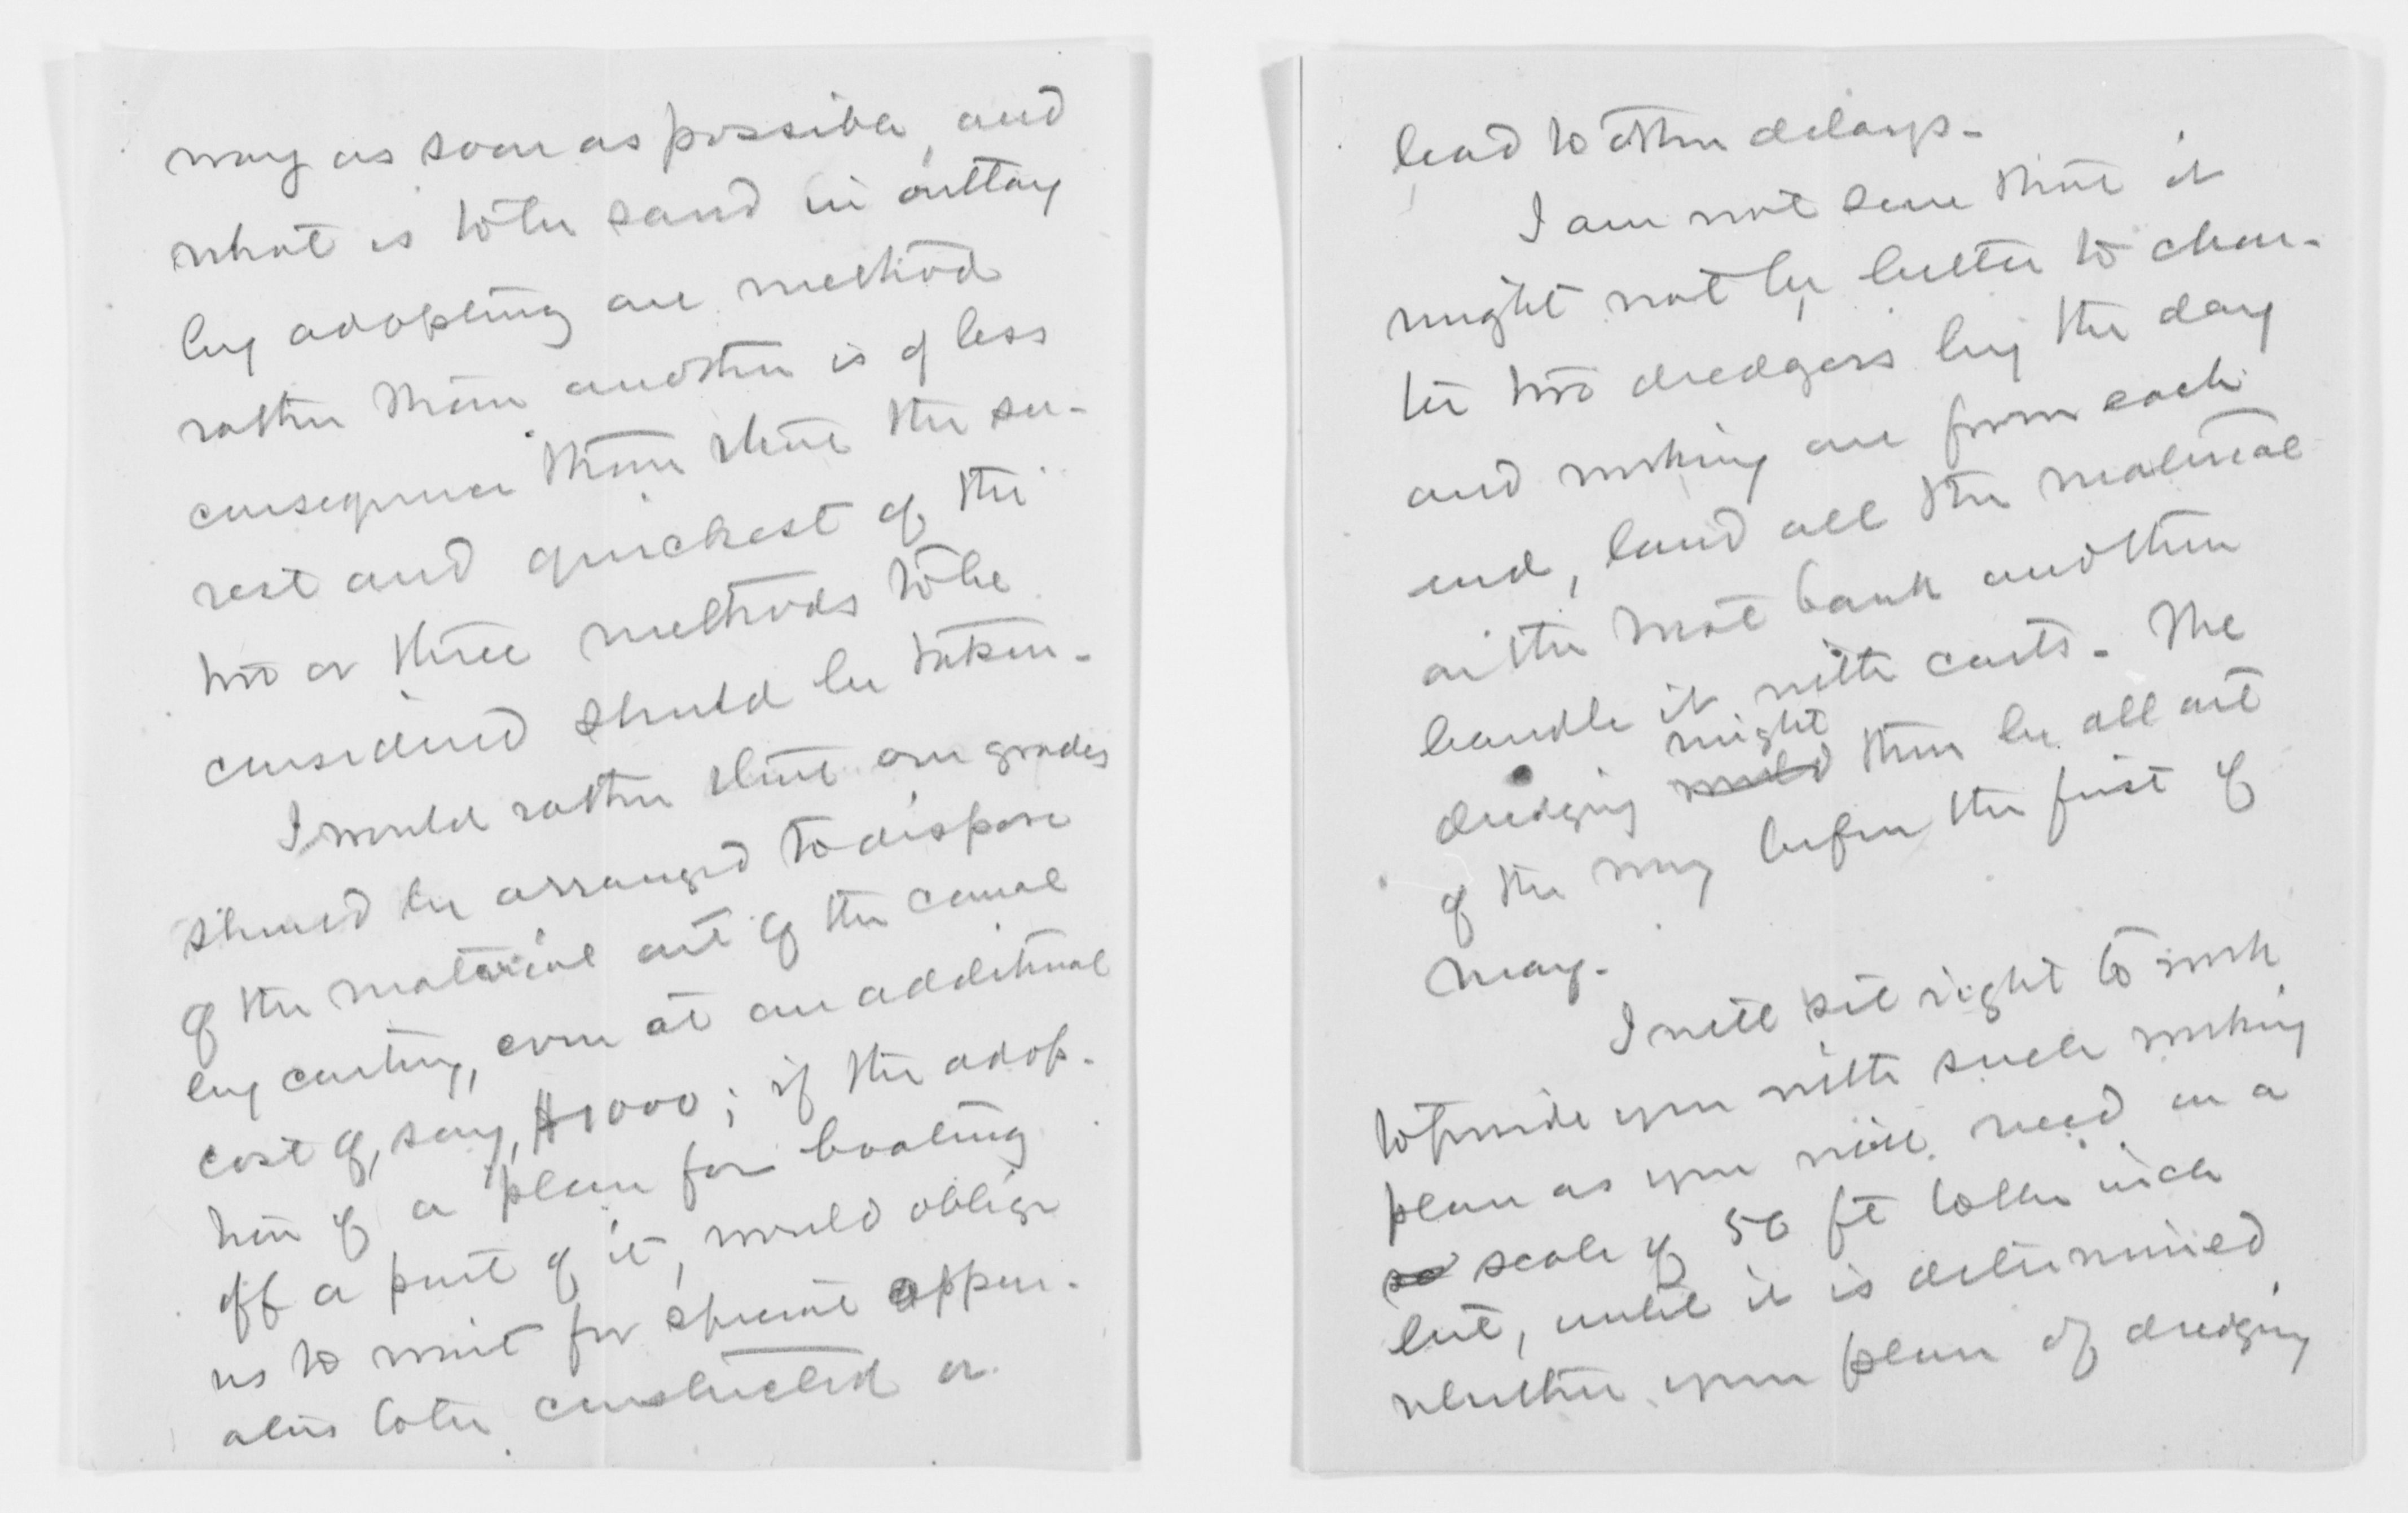 way as soon as possible, and
what is to be saved in outlay
by adopting one method
rather than another is of less
consequence than that the su-
rest and quickest of the
two or three methods to be
considered should be taken.
I would rather that our grades
should be arranged to dispose
of the material out of the canal
by carting, even at an additional
cost of, say, $1000; if the adop-
tion of a plan for boating
off a part of it, would oblige
us to wait for special appar-
atus to be constructed or
lead to other delays.
I am not sure that it
might not be better to char-
ter two dredgers by the day
and working one from each
end, land all the material
on the west bank and then
handle it with carts. The
might
dredging would then be all out
of the way before the first of
May.
I will set right to work
to provide you with such working
plan as you will need on a
sc scale of 50 ft to the inch
but, until it is determined
whether your plan of dredging